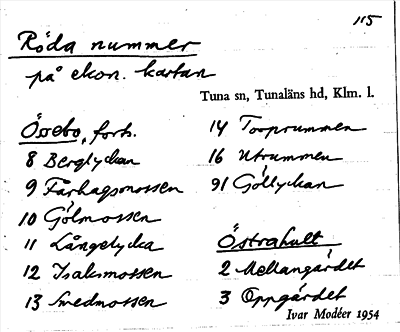 115
Röda nummer
på ekon. kartan
Tuna sn, Tunaläns hd, Klm. l.
Össebo, forts.
8 Berglyckan
9 Fårhagsmossen
10 Gölmossen
11 Långelycka
12 Isaksmossen
13 Smedmossen
14 Torprummen
16 Utrummen
91 Göllyckan
Östrahult
2 Mellangärdet
3 Oppgärdet
Ivar Modéer 1954